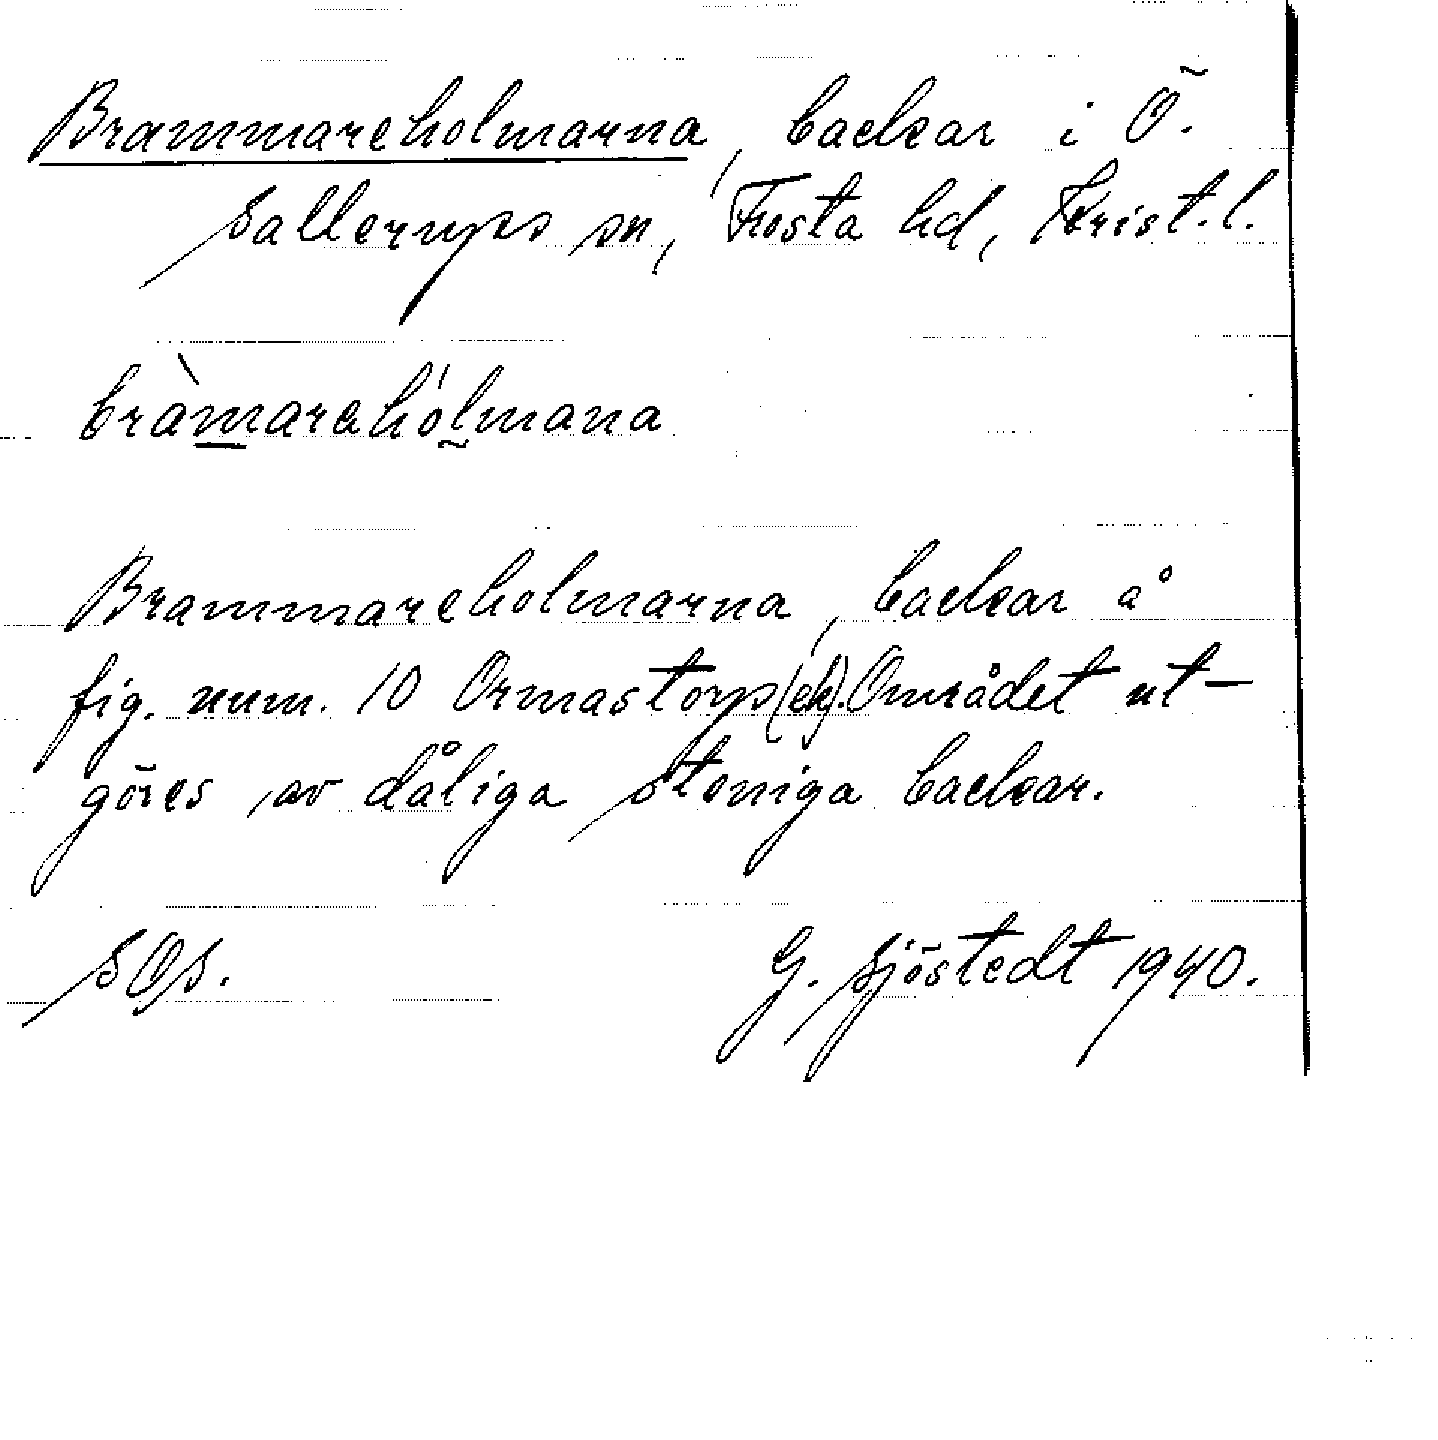 Brammareholmarna, backar i Ö.
Sallerups sn, Frosta hd, Krist. l.
bràmarehólmana
Brammareholmarna, backar å
fig. num. 10 Ormastorp (ek). Området ut-
göres av dåliga steniga backar.
SOs.
G. Sjöstedt 1940.